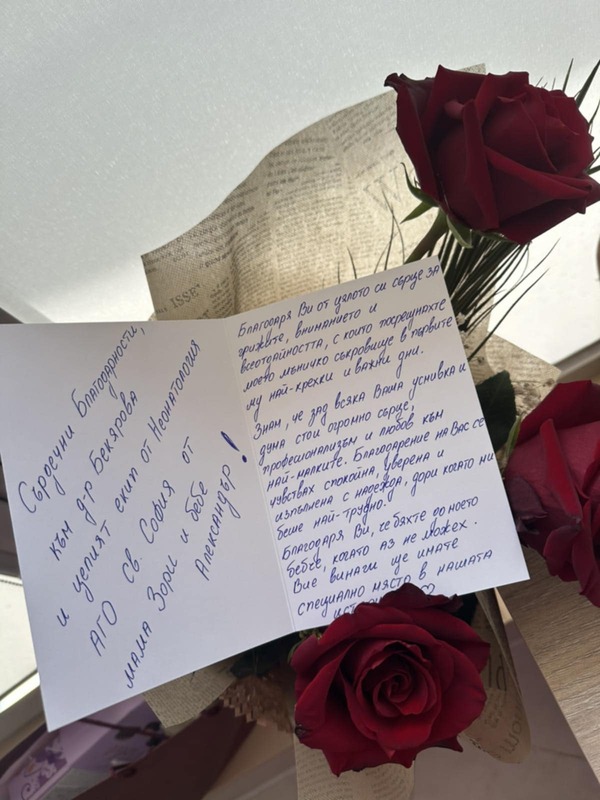 Сърдечни Благодарности,
към д-р Бекярова
и целият екип от Неонатология
АГО св. София от
мама Зори и бебе
Александър!
Благодаря Ви от цялото си сърце за
грижите, вниманието и
всеотдайността, с които посрещнахте
моето мъничко съкровище в първите
му най-крехки и важни дни.
Знам, че зад всяка Ваша усмивка и
дума стои огромно сърце,
професионализъм и любов към
най-малките. Благодарение на Вас се
чувствах спокойна, уверена и
изпълнена с надежда, дори когато ми
беше най-трудно.
Благодаря Ви, че бяхте до моето
бебче, когато аз не можех.
Вие винаги ще имате
специално място в нашата
ISSE